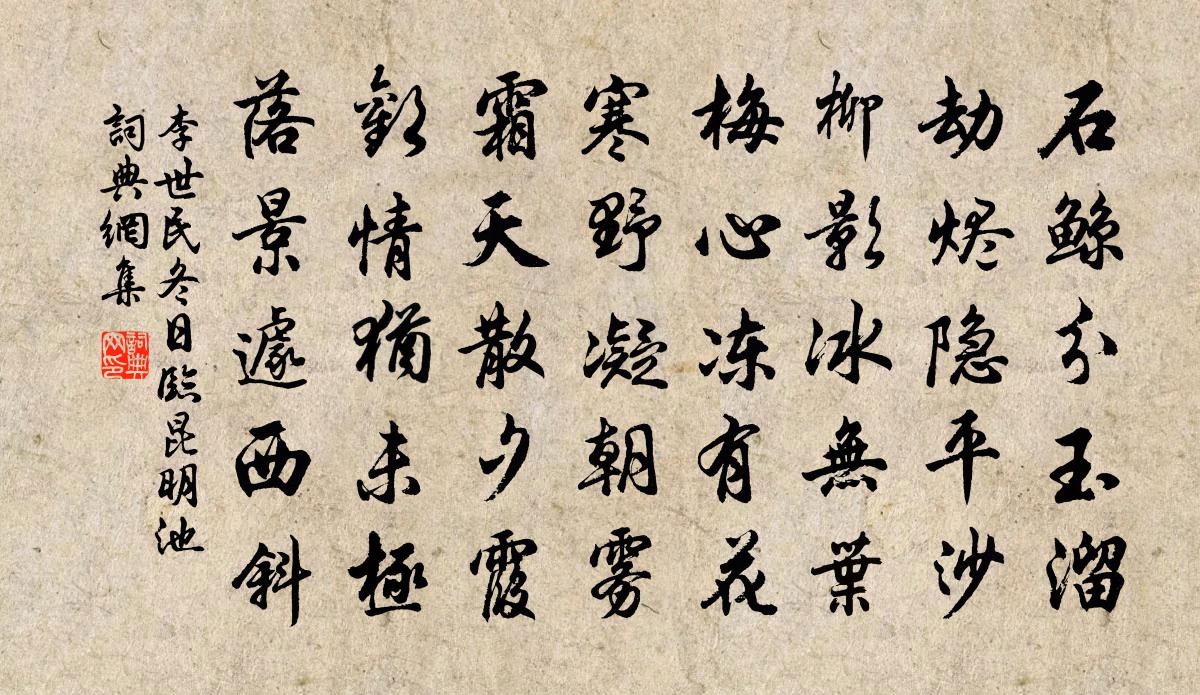 石鲸分玉溜
劫烬隐平沙
柳影冰無葉
梅心冻有花
寒野凝朝雾
霜天散夕霞
歡情猶未極
落景遽西斜
李世民冬日臨昆明池
詞典網集
詞典
网印